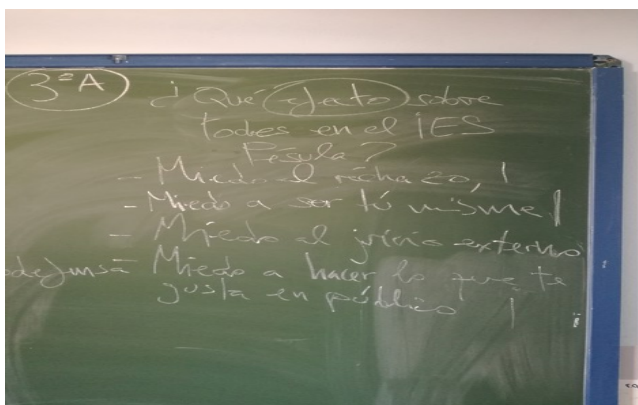 3ºA
¿Qué efecto sobre
todes en el IES
Fésula?
- Miedo al rechazo, |
- Miedo a ser tú misme |
- Miedo al juicio externo
defensa - Miedo a hacer lo que te
gusta en público |